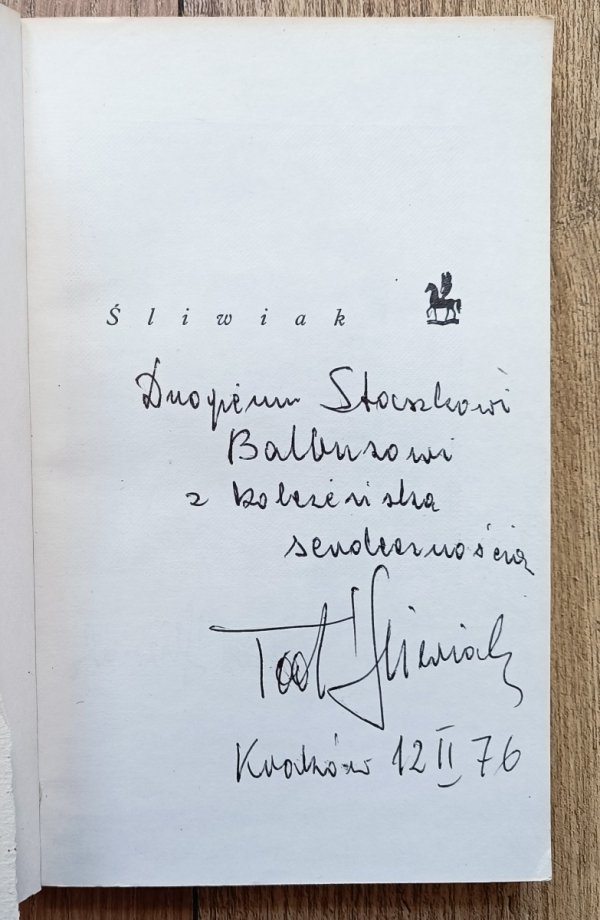 Śliwiak
Drogiemu Staszkowi
Balbusowi
z koleżeńską
serdecznością
Tad Śliwiak
Kraków 12 II 76